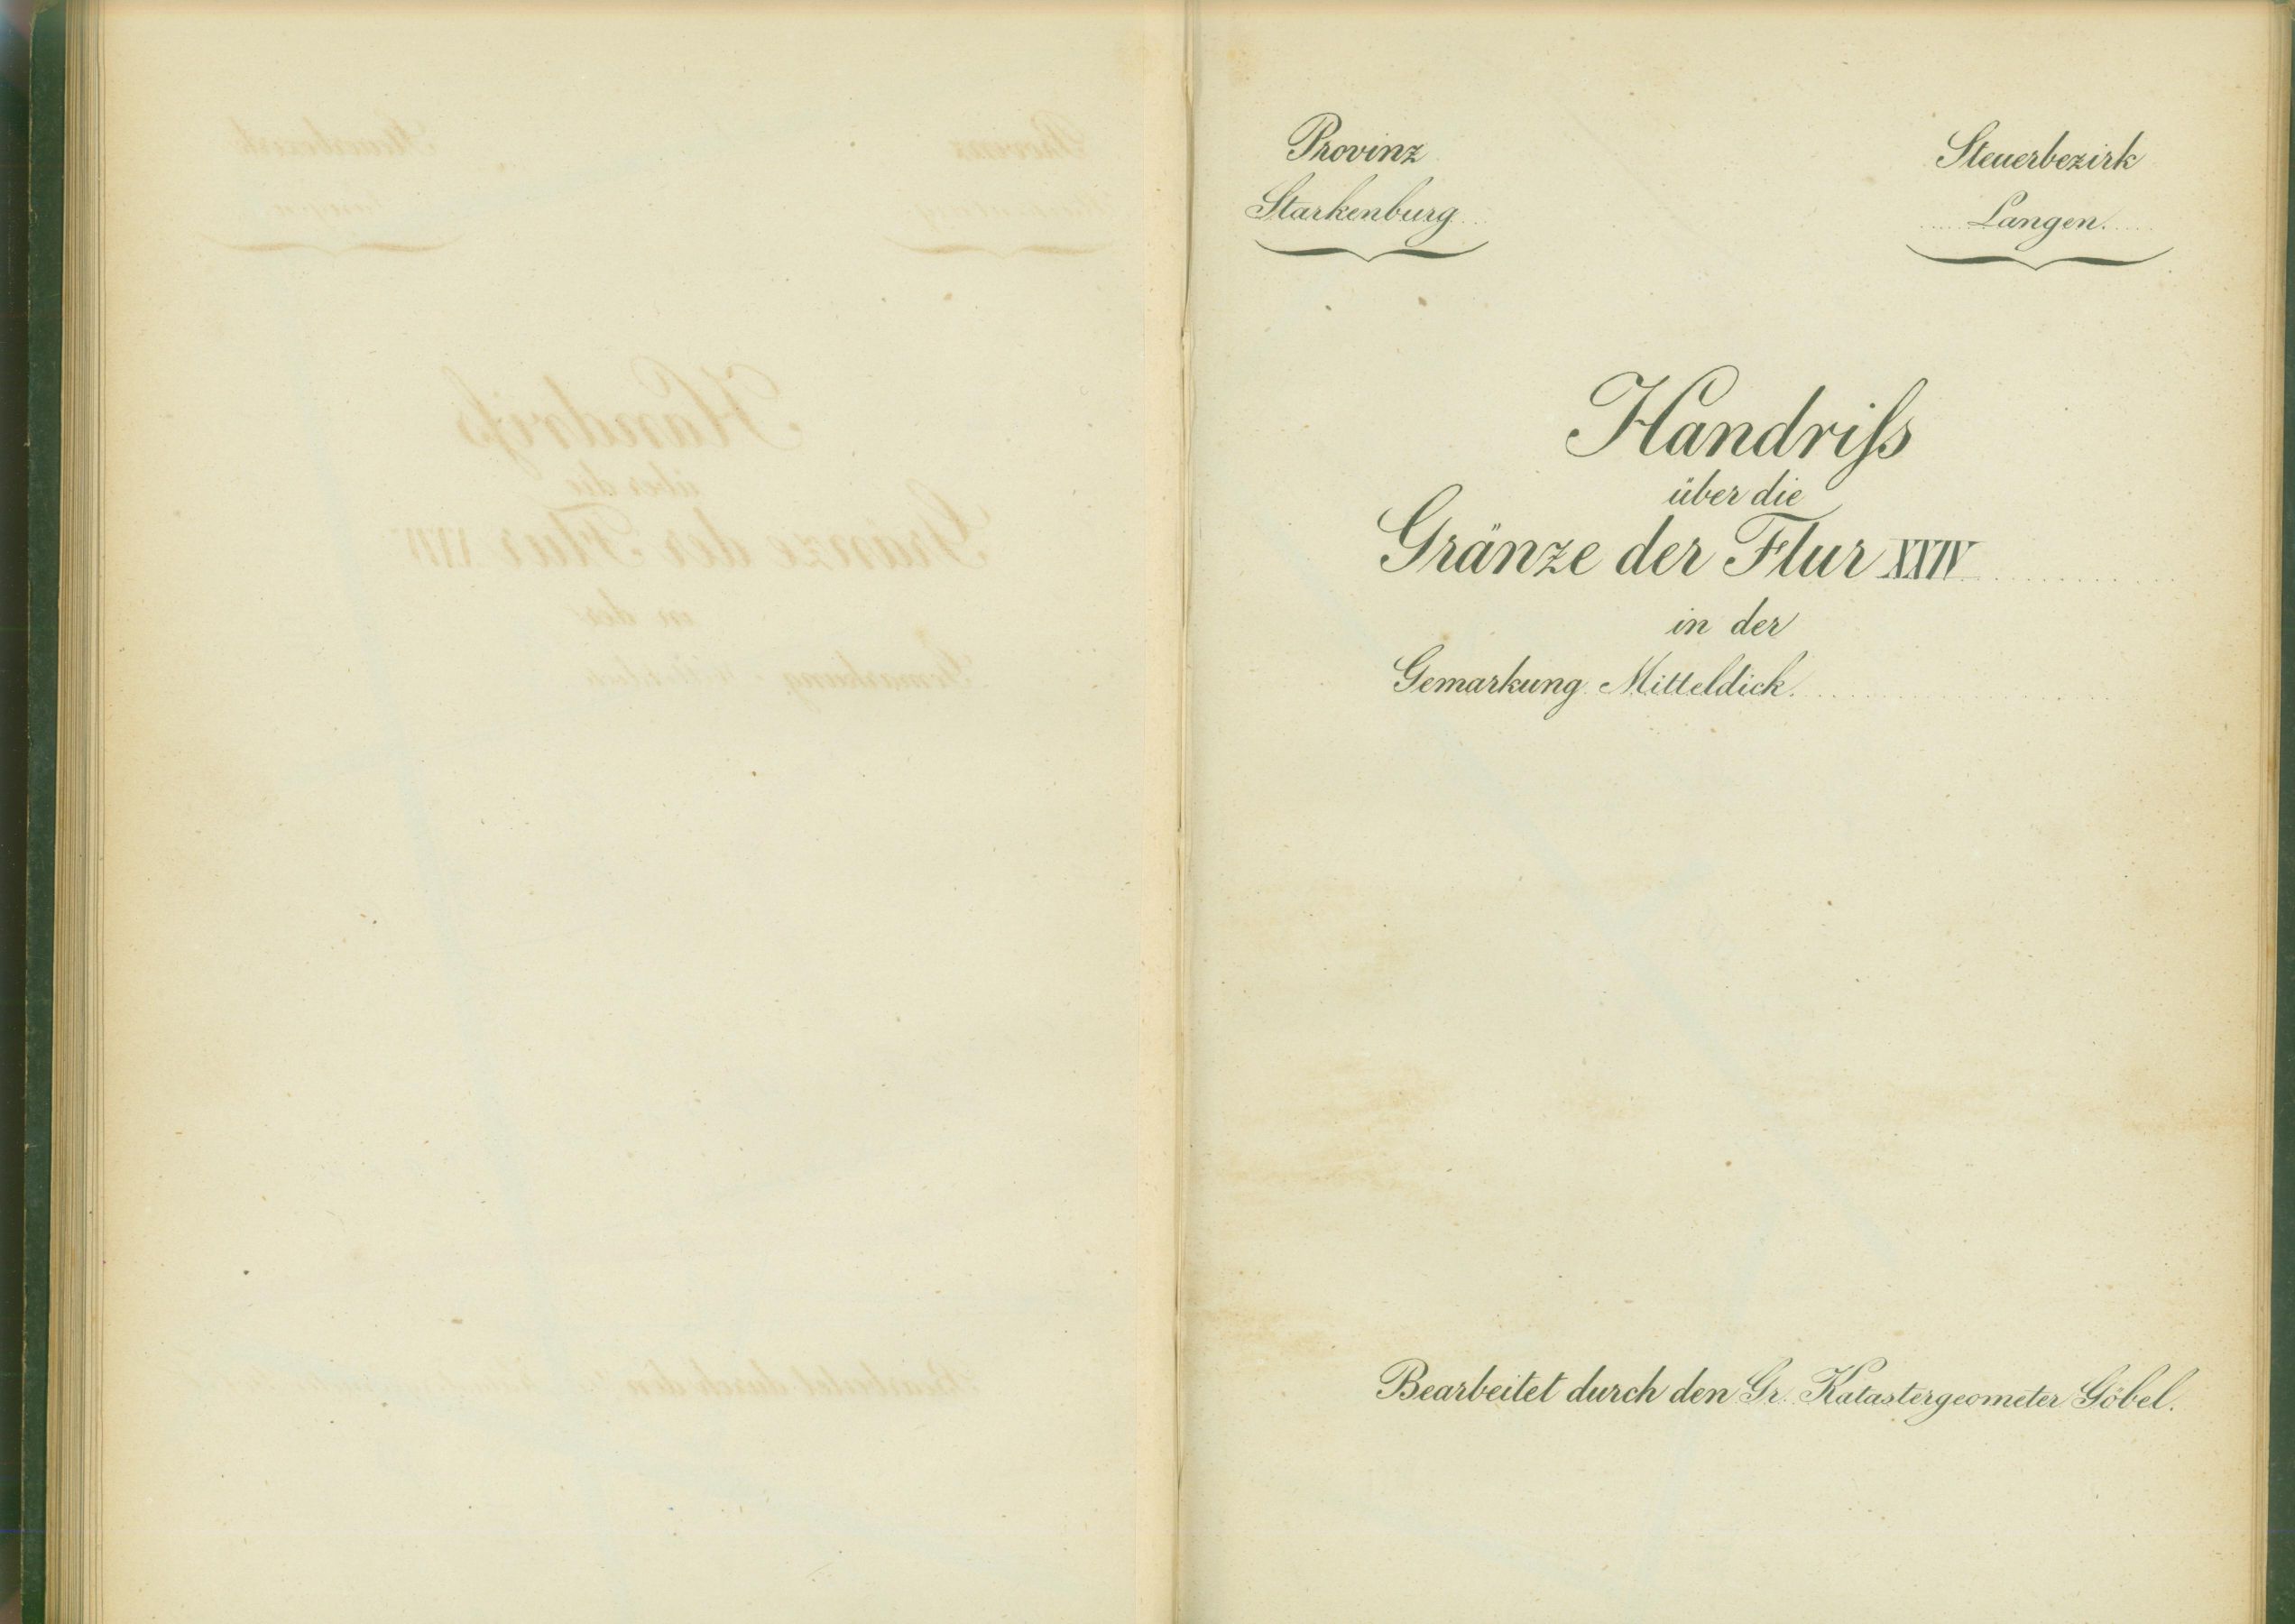 Provinz
Starkenburg
Steuerbezirk
Langen.
Handriſs
über die
Gränze der Flur XXIV
in der
Gemarkung Mitteldick.
Bearbeitet durch den Gr. Katastergeometer Göbel.